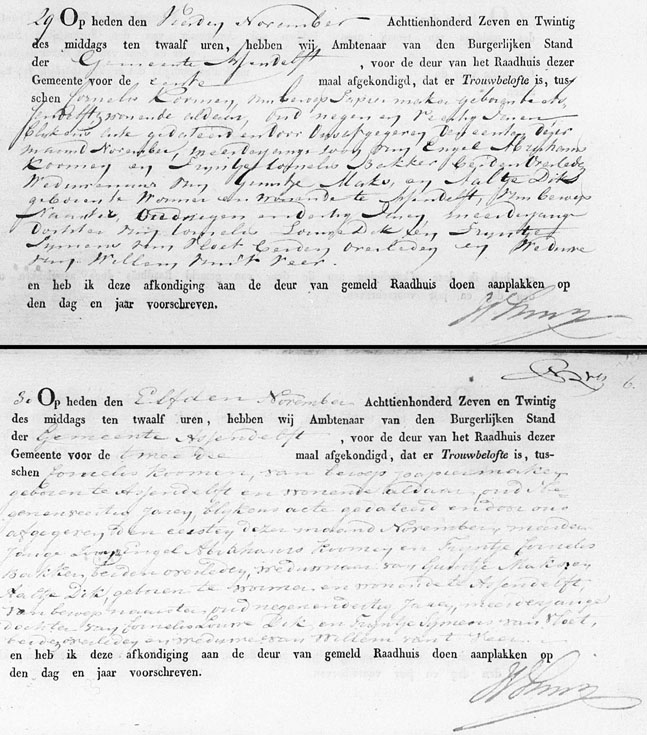 29 Op heden den Vierden November Achttienhonderd Zeven en Twintig
des middags ten twaalf uren, hebben wij Ambtenaar van den Burgerlijken Stand
der Gemeente Assendelft , voor de deur van het Raadhuis dezer
Gemeente voor de eerste maal afgekondigd, dat er Trouwbelofte is, tus-
schen Cornelis Koomen, van beroep papiermaker geboren te As-
sendelft, wonende aldaar, oud negen en veertig Jaren
blykens acte gedateerd en door ons afgegeven den eersten dezer
maand November, meerderjarige zoon van Engel Abraham
Koomen en Tryntje Cornelis Bakker beiden overleden
Weduwenaar van Guurtje Maks, en Aaltje Dik
geboren te Wormer en wonende te Assendelft, van beroep
Naaister, Oud negen en dertig Jaren, meerderjarige
dochter van Cornelis Louwe Dik en Tryntje
Symons van Vloet beiden overleden en Weduwe
van Willem van 't Veer.
en heb ik deze afkondiging aan de deur van gemeld Raadhuis doen aanplakken op
den dag en jaar voorschreven.
6.
30 Op heden den Elfden November Achttienhonderd Zeven en Twintig
des middags ten twaalf uren, hebben wij Ambtenaar van den Burgerlijken Stand
der Gemeente Assendelft , voor de deur van het Raadhuis dezer
Gemeente voor de tweede maal afgekondigd, dat er Trouwbelofte is, tus-
schen Cornelis Koomen, van beroep papiermaker
geboren te Assendelft en wonende aldaar, oud ne-
genenveertig Jaren, blykens acte gedateerd en door ons
afgegeven den eersten dezer maand November, meerder-
jarige zoon van Engel Abrahams Koomen en Tryntje Cornelis
Bakker, beiden overleden, weduwnaar van Guurtje Maks en
Aaltje Dik, geboren te Wormer en wonende te Assendelft,
van beroep naaister, oud negenendertig Jaren, meerderjarige
dochter van Cornelis Louwe Dik en Tryntje Symons van Vloet,
beiden overleden en weduwe van Willem van 't Veer.
en heb ik deze afkondiging aan de deur van gemeld Raadhuis doen aanplakken op
den dag en jaar voorschreven.